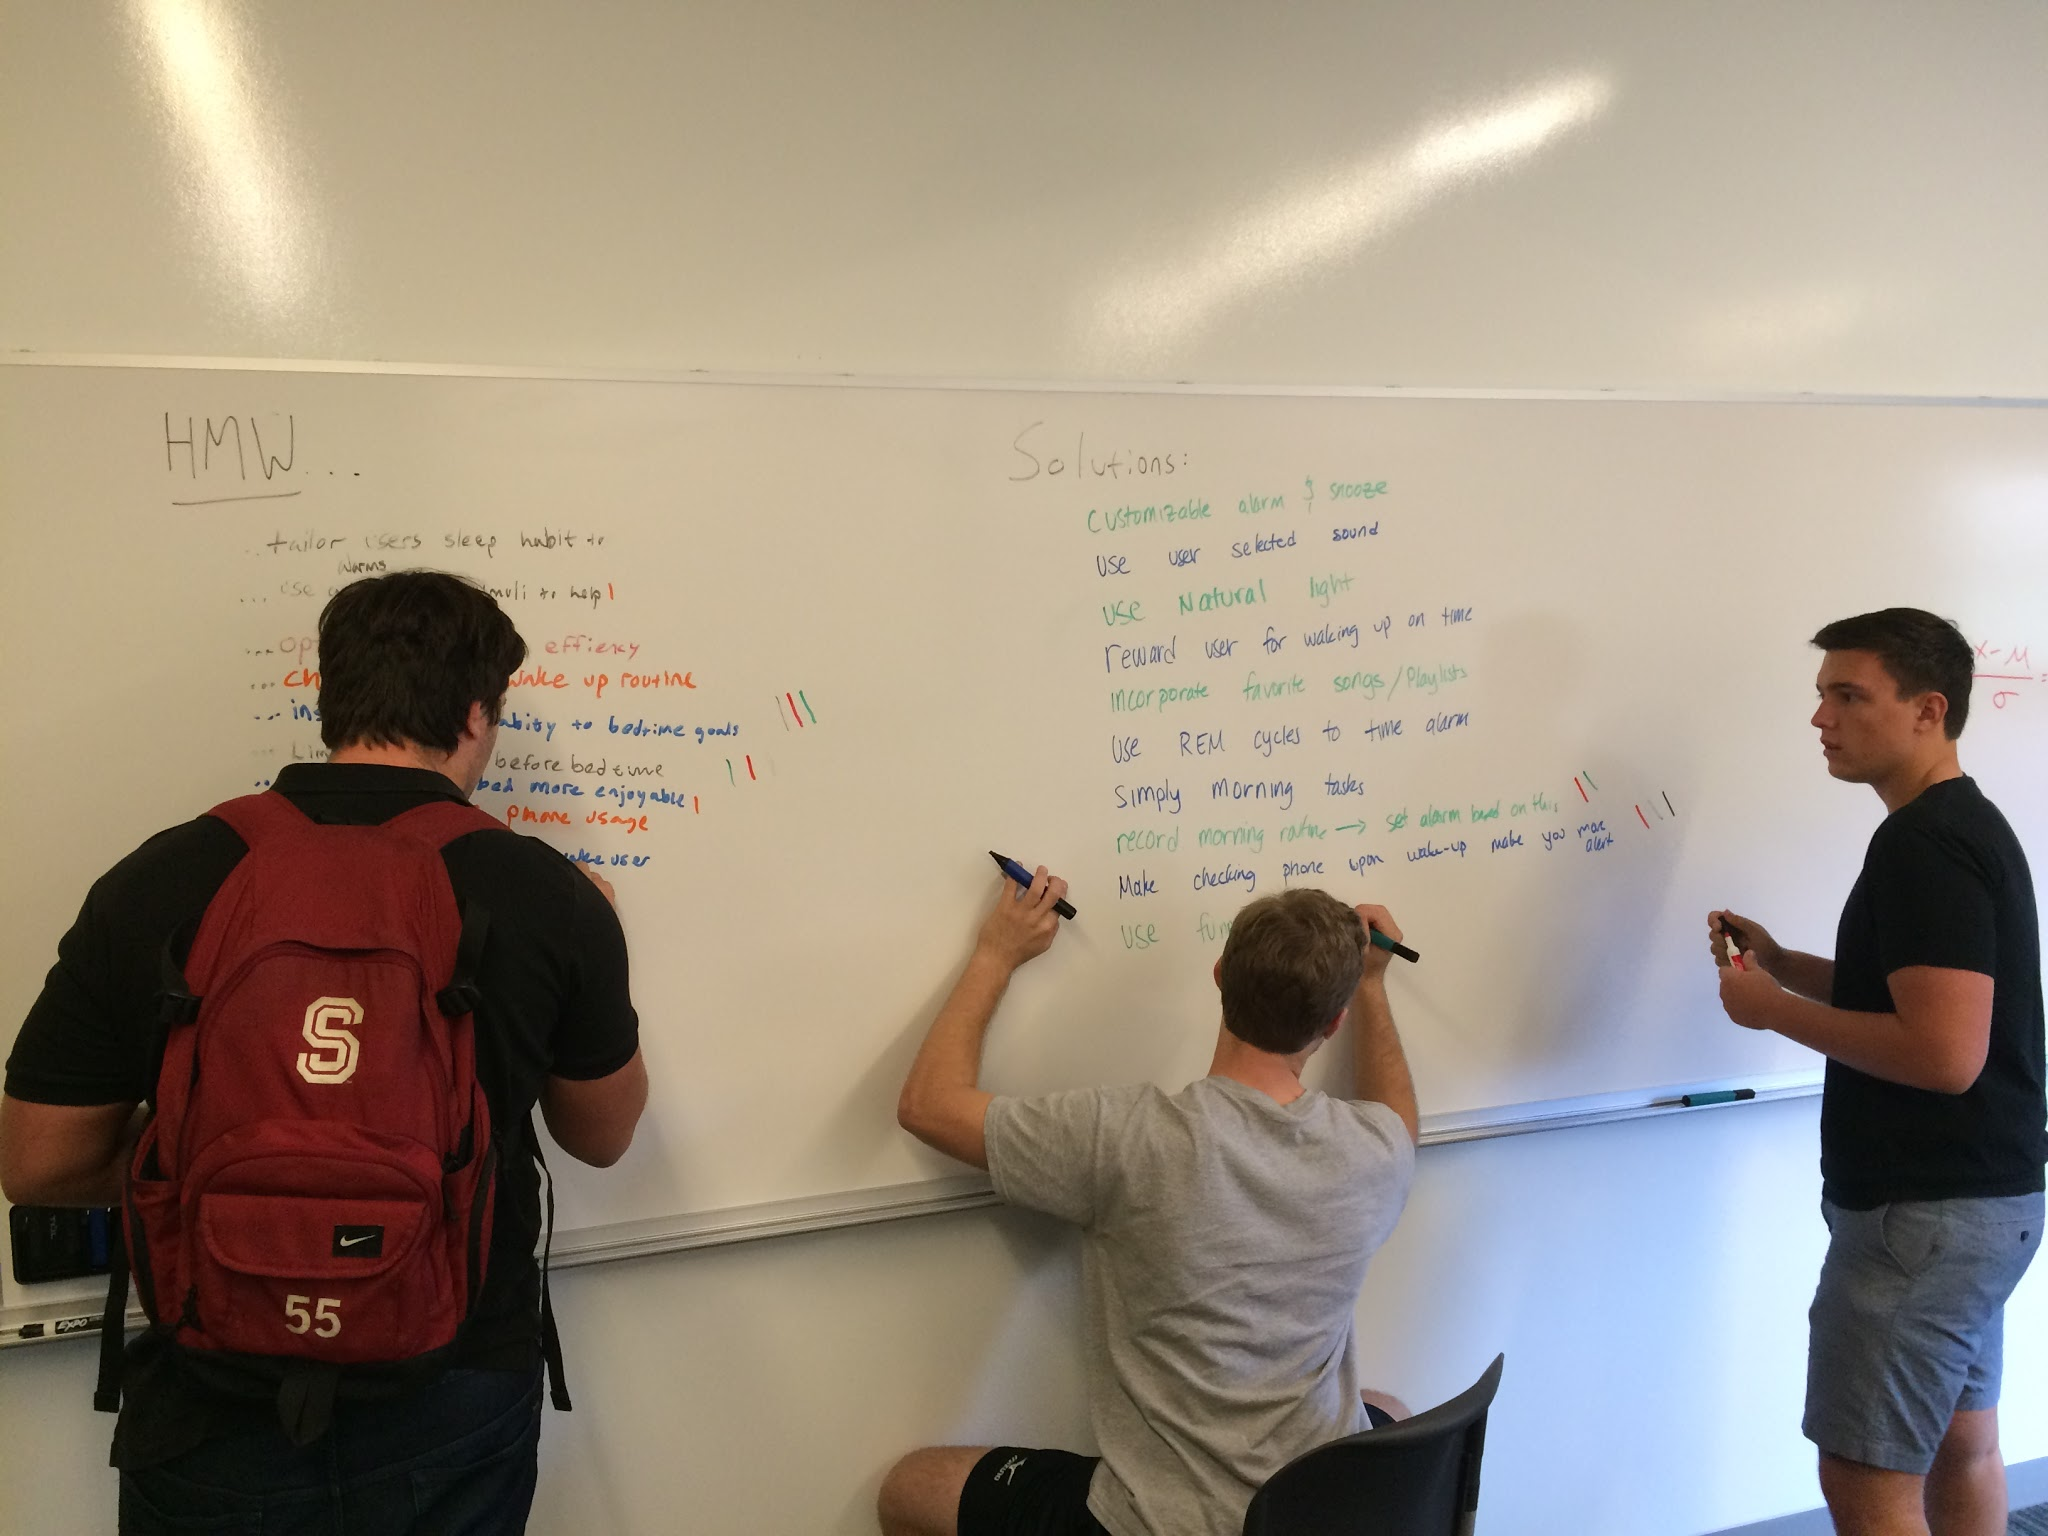 HMW...
... tailor users sleep habit to
alarms
... use muli to help
... op effieny
... ch wake up routine
... ins abity to bedtime goals
... Lim before bedtime
... bed more enjoyable
phone usage
wake user
Solutions:
Customizable alarm & snooze
Use user selected sound
Use Natural light
reward user for waking up on time
incorporate favorite songs/Playlists
Use REM cycles to time alarm
Simply morning tasks
record morning routine → set alarm based on this
Make checking phone upon wake-up make you more
alert
Use fun
x-μ
σ
=
S
55
EXPO